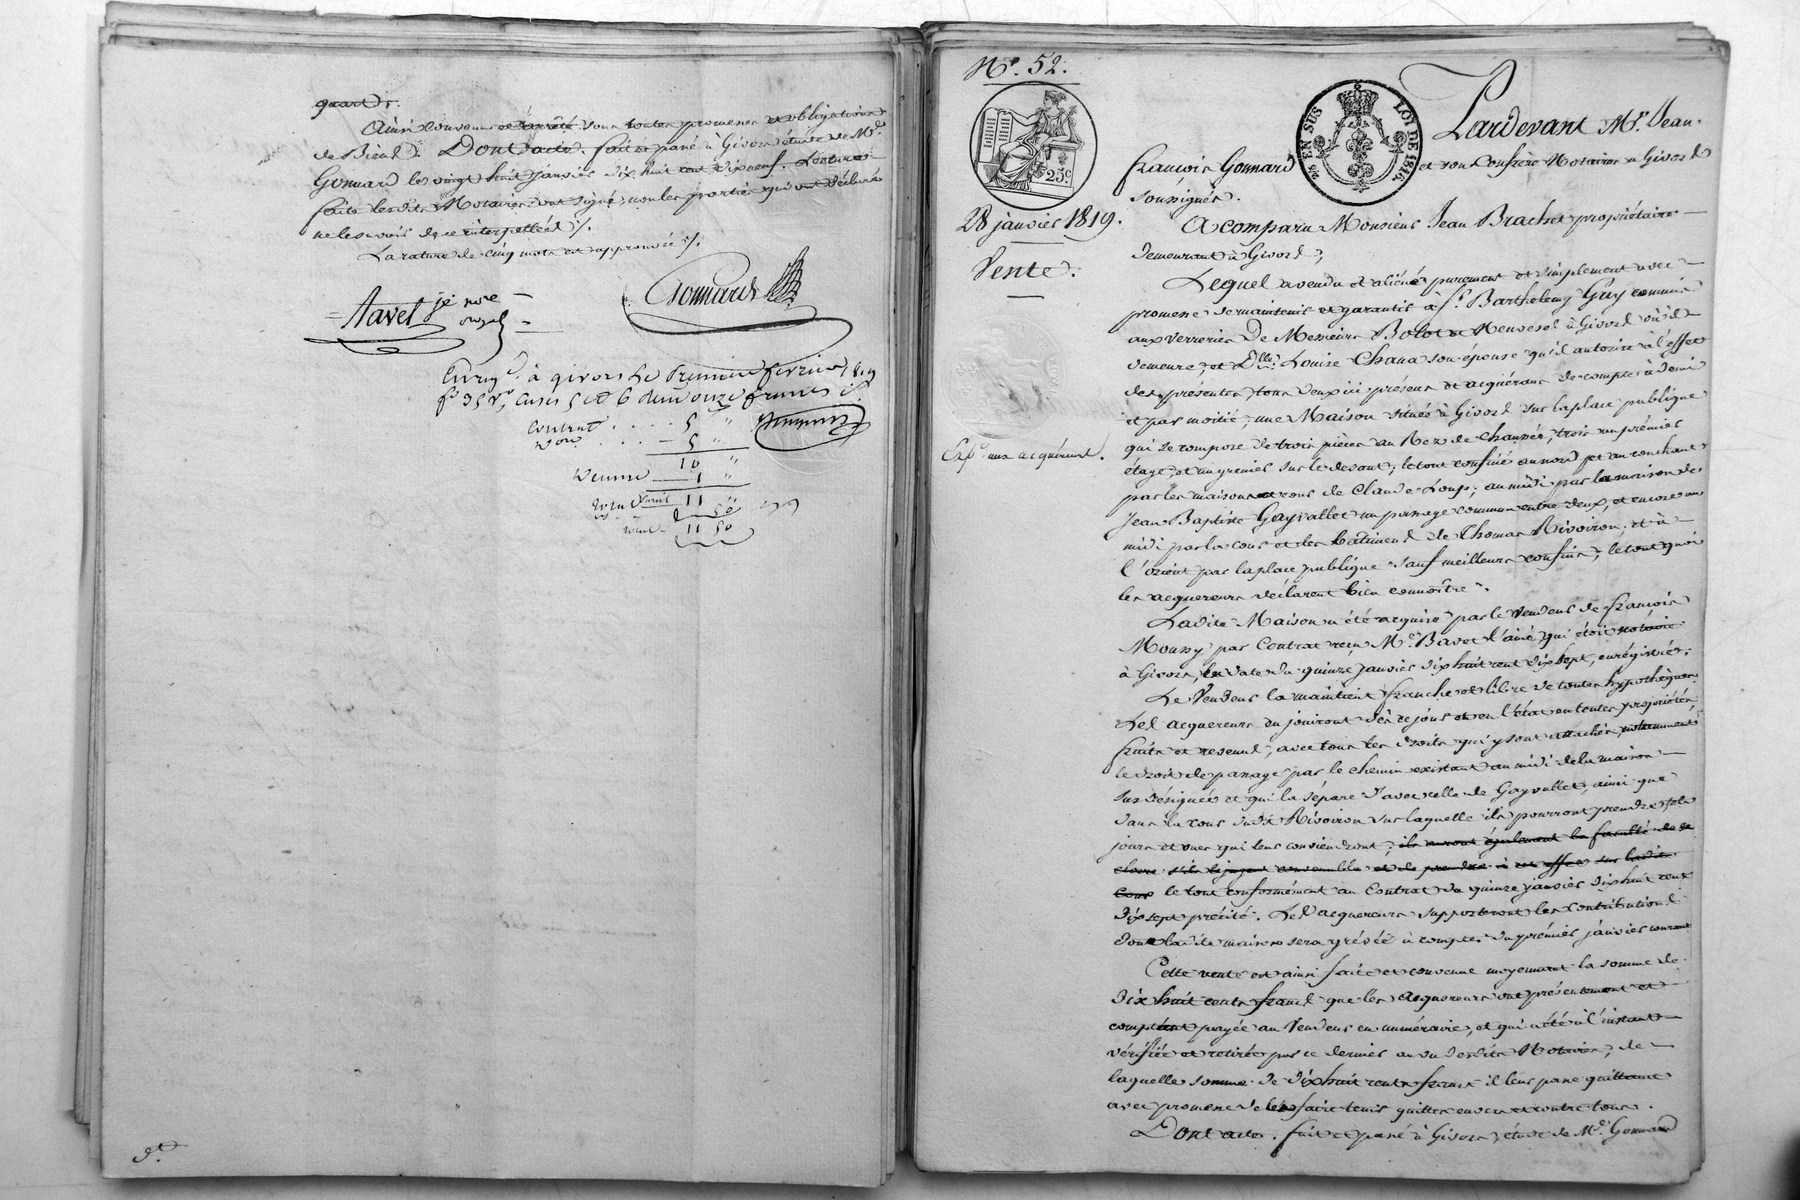 quarts.
Ainsi convenu et arrêté sous toutes promesses et obligations
de Biens. Dont acte. fait et passé à Givors étude de Me.
Gonnard le vingt huit janvier dix huit cent dix neuf. Lecture
faite lesdits Notaires ont signé, non les parties qui ont déclaré
ne le savoir de ce interpellées ./.
La rature de cinq mots est approuvée ./.
Gonnard
Enregé. à givors le Premier fevrier 1819
contrat . . . . 5 "
5 "
10 "
1 "
11 "
11 50
No. 52.
25c.
28 janvier 1819.
Vente.
Expé. aux acquéreurs.
EN SUS LOI DE 1816.
Pardevant Me. Jean
françois Gonnard et son Confrère Notaires à Givors
soussignés.
A comparu Monsieur Jean Brachet propriétaire
demeurant à Givors;
Lequel a vendu et aliéné purement et simplement avec
promesse de maintenir et garantir à Sr. Barthelemy Guy commis
aux verreries De Messieurs Bolot et Neuvesel à Givors où il
demeure, et Dlle. Louise Chana son épouse qu'il autorise à l'effet
des présentes, tous deux ici présens et acquérans de compte à demi
et par moitié, une Maison située à Givors sur la place publique
qui se compose de trois pièces au Rez de Chaussée, trois au prémier
étage, et un grenier sur le devant; le tout confiné au nord et au couchant
par les maisons et cour de Claude Loup; au midi par la maison de
Jean Baptiste Gayvallet un passage commun entre deux, et encore au
midi par la cour et les bâtimens de Thomas Rivoiron; et à
l'orient par la place publique sauf meilleurs confins; le tout quoi
les acquereurs déclarent bien connoître.
Ladite Maison a été acquise par le Vendeur de françois
Moussy par Contrat reçu Me. Bavet l'ainé, qui étoit Notaire
à Givors, en date du quinze janvier dix huit cent dix sept, enrégistré;
Le Vendeur la maintient franche et libre de toutes hypothèques.
Les acquereurs en jouiront dès ce jour et en l'état en toutes propriétés,
fruits et revenus, avec tous les droits qui y sont attachés, notamment
le droit de passage par le chemin existant au midi de la maison
sus désignée et qui la sépare d'avec celle de Gayvallet, ainsi que
dans la cour dudit Rivoiron sur laquelle ils pourront prendre tels
jours et vues qui leur conviendront; ils auront également la faculté de se
clorre s'ils le jugent convenable et de prendre à cet effet sur ladite
Cour le tout conformément au Contrat du quinze janvier dix huit cent
dix sept précité. Les acquereurs supporteront les contributions
dont ladite maison sera grévée à compter du prémier janvier courant
Cette vente est ainsi faite et convenue moyennant la somme de
dix huit cents francs que les Acquereurs ont présentement et
comptant payée au Vendeur en numéraire, et qui a été à l'instant
vérifiée et retirée par ce dernier au vu desdits Notaires, de
laquelle somme de dix huit cents francs il leur passe quittance
avec promesse de les faire tenir quittes envers et contre tous.
Dont acte. fait et passé à Givors, étude de Me. Gonnard